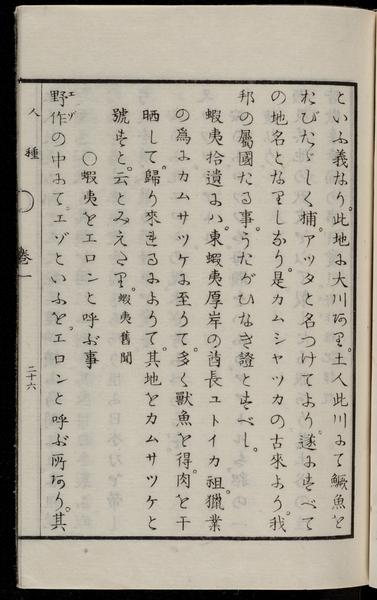 といふ義なり。此地に大川あり。土人此川にて鱖魚を
おびたゝしく捕。アツタと名つけてより。遂にすべて
の地名となりしなり。是カムシヤツカの古來より。我
邦の屬國たる事。うたがひなき證とすべし。
蝦夷拾遺には。東蝦夷厚岸の酋長ユトイカ祖。獵業
の爲にカムサツケに至りて。多く獸魚を得。肉を干
晒して。歸り來るによりて。其地をカムサツケと
號すと。云とみえたり。蝦夷舊聞
〇蝦夷をエロンと呼ぶ事
野作の中にてエゾといふを。エロンと呼ぶ所あり。其
エゾ
人種
卷一
二十六